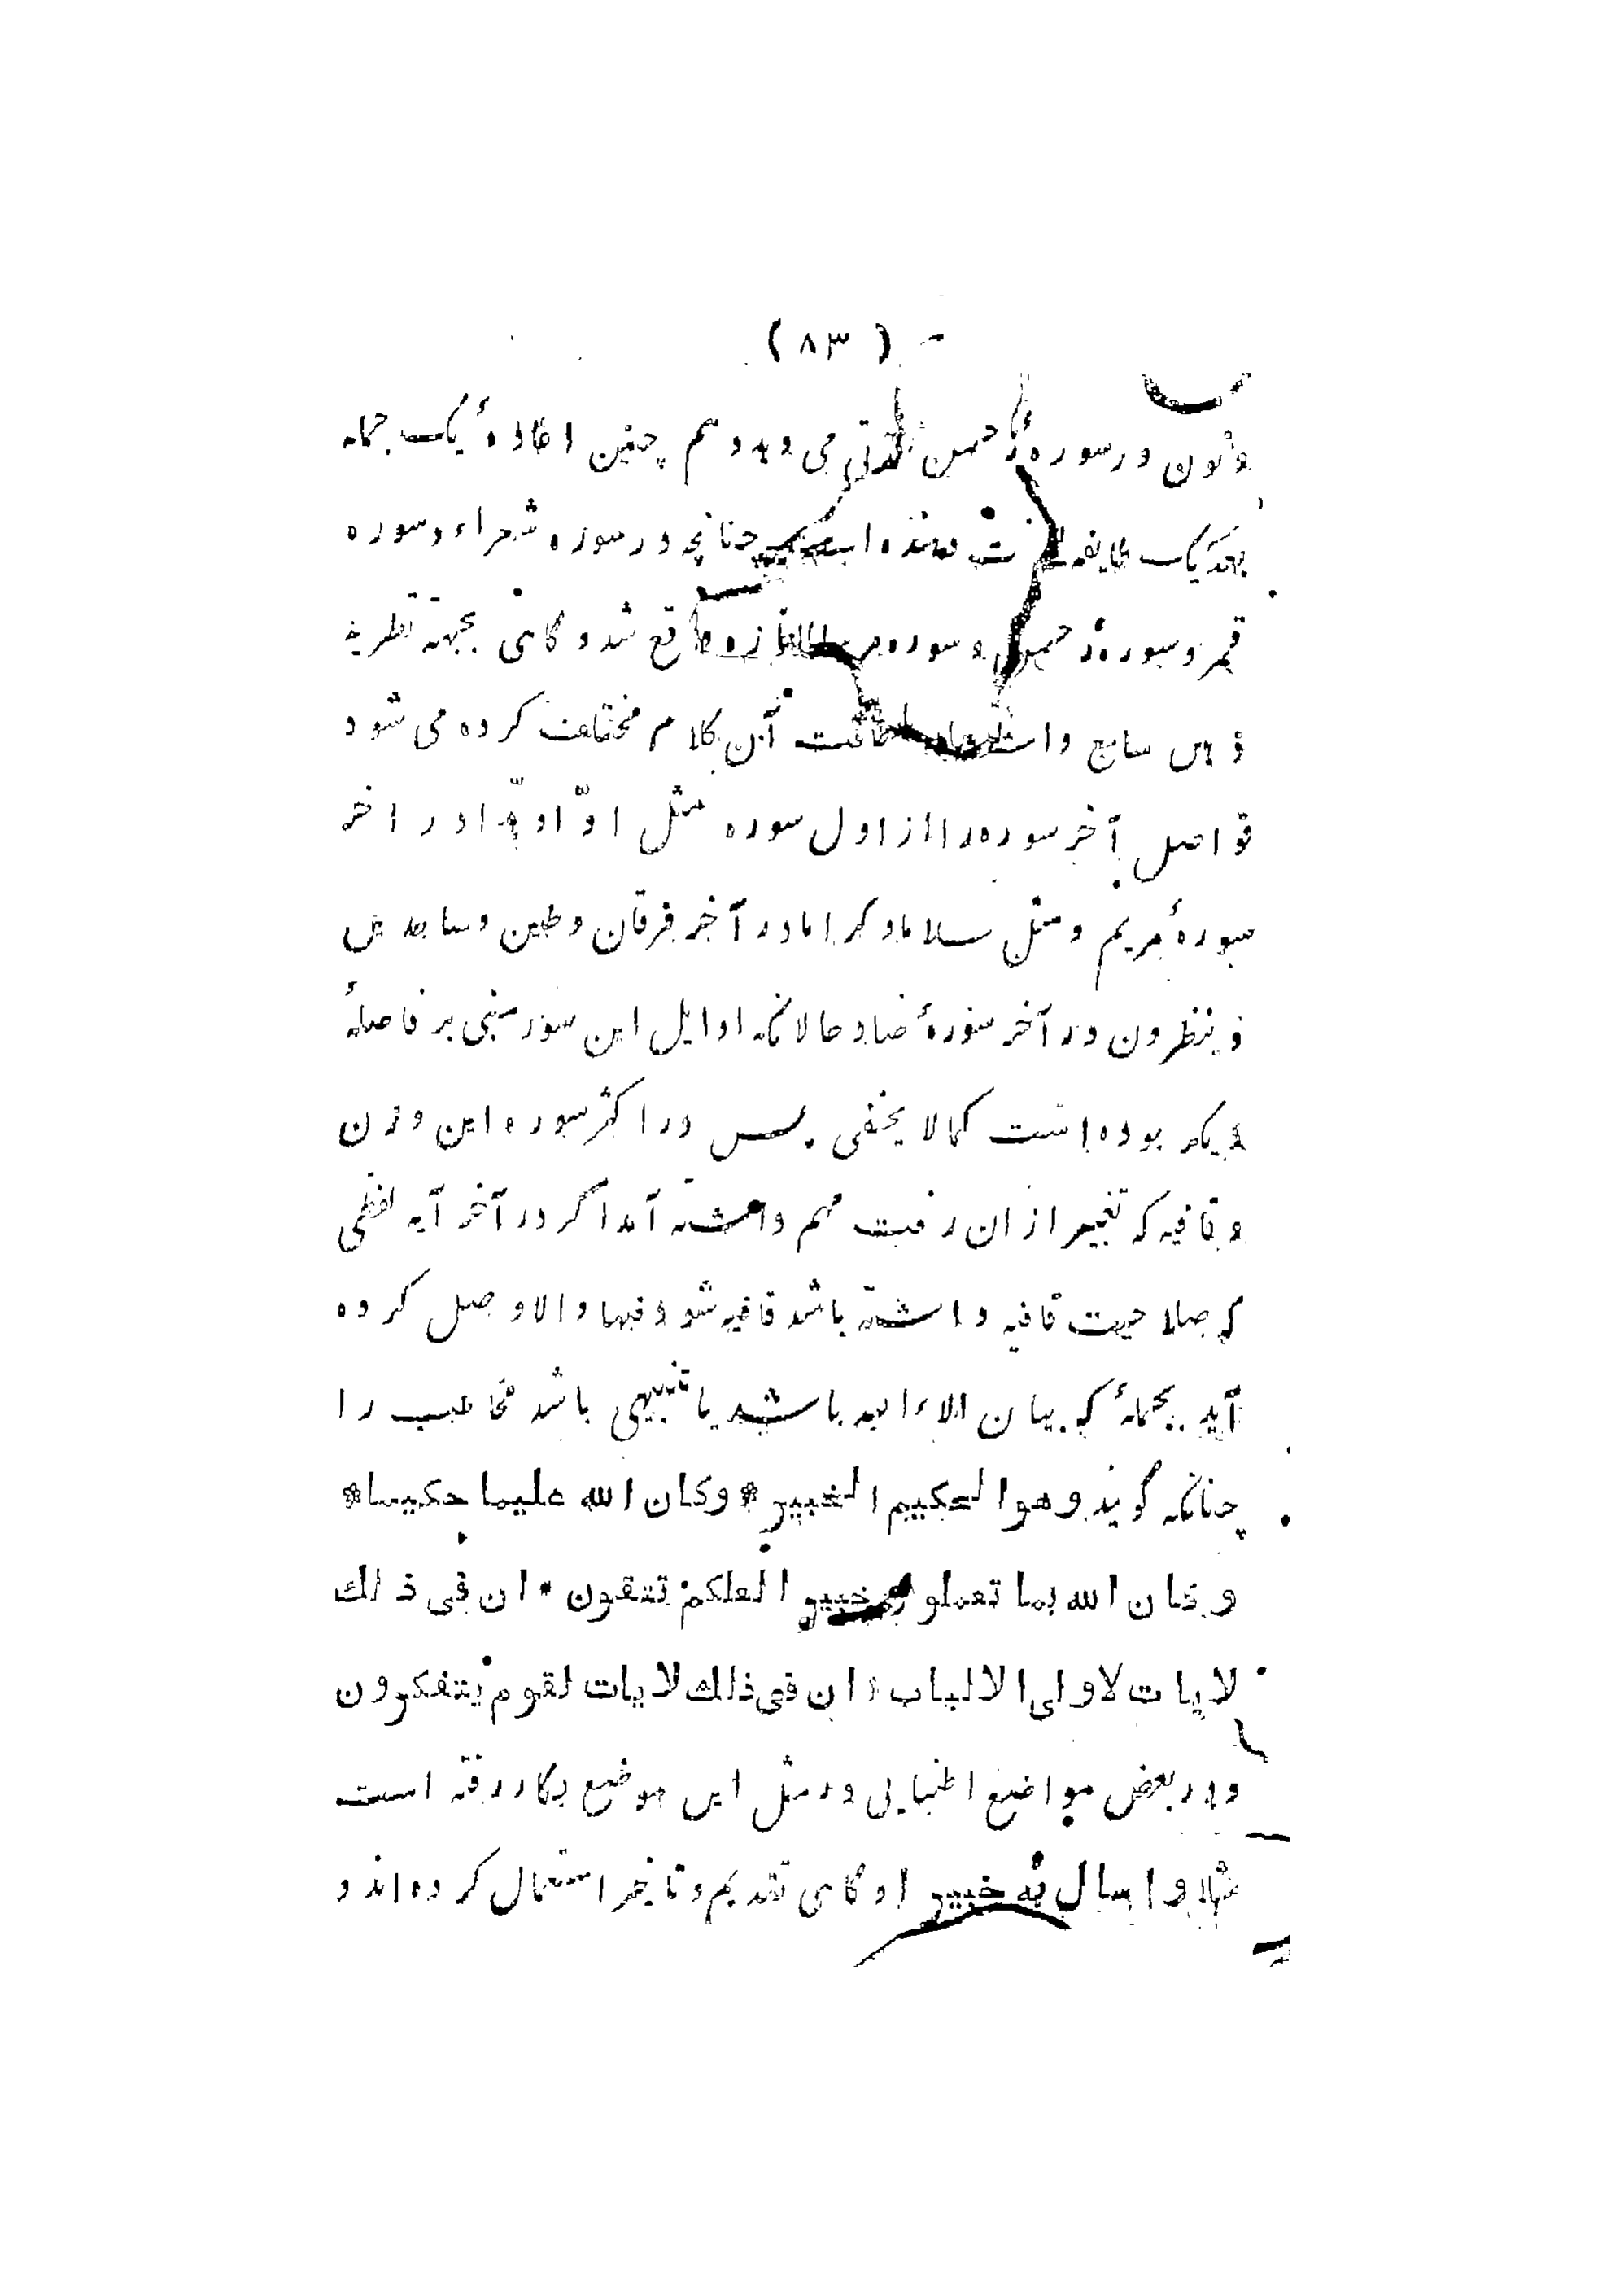 ( ۸۳ )
و نون در سورهٔ رحمن لذتی می دهد و هم چنین اعادهٔ یک جمله
بعد یک طایفه لذت دهنده است چنانچه در سوره شعراء و سوره
قمر و سورهٔ رحمن و سوره مرسلات واقع شد و گاهی بجهته تطریه
ذهن سامع و اشعار بلطافت آن کلام مختلف کرده می شود
فواصل آخر سوره را از اول سوره مثل ادّا و هدّا در اخر
سورهٔ مریم و مثل سلاما و کراما در آخر فرقان و طین و ساجدین
و ینظرون در آخر سورهٔ صاد حالانکه اوایل این سور مبنی بر فاصلهٔ
دیگر بوده است کمالا یخفی پس در اکثر سوره این وزن
و قافیه که تعبیر ازان رفت مهم داشته آمد اگر در آخر آیه لفظی
که صلاحیت قافیه داشته باشد قافیه شود فبها و الا وصل کرده
آید بجملهٔ که بیان الاء الله باشد یا تنبیهی باشد مخاطب را
چنانکه گویند وهو الحکیم الخبیر * وکان الله علیما حکیما *
وکان الله بما تعملون خبیرا لعلکم تتقون * ان فی ذلك
لایات لاولی الالباب * ان فی ذلك لایات لقوم یتفکرون
و در بعض مواضع اطنابی در مثل این موضع بکار رفته است
مثلا واسال به خبیرا و گاهی تقدیم و تاخیر استعمال کرده اند و